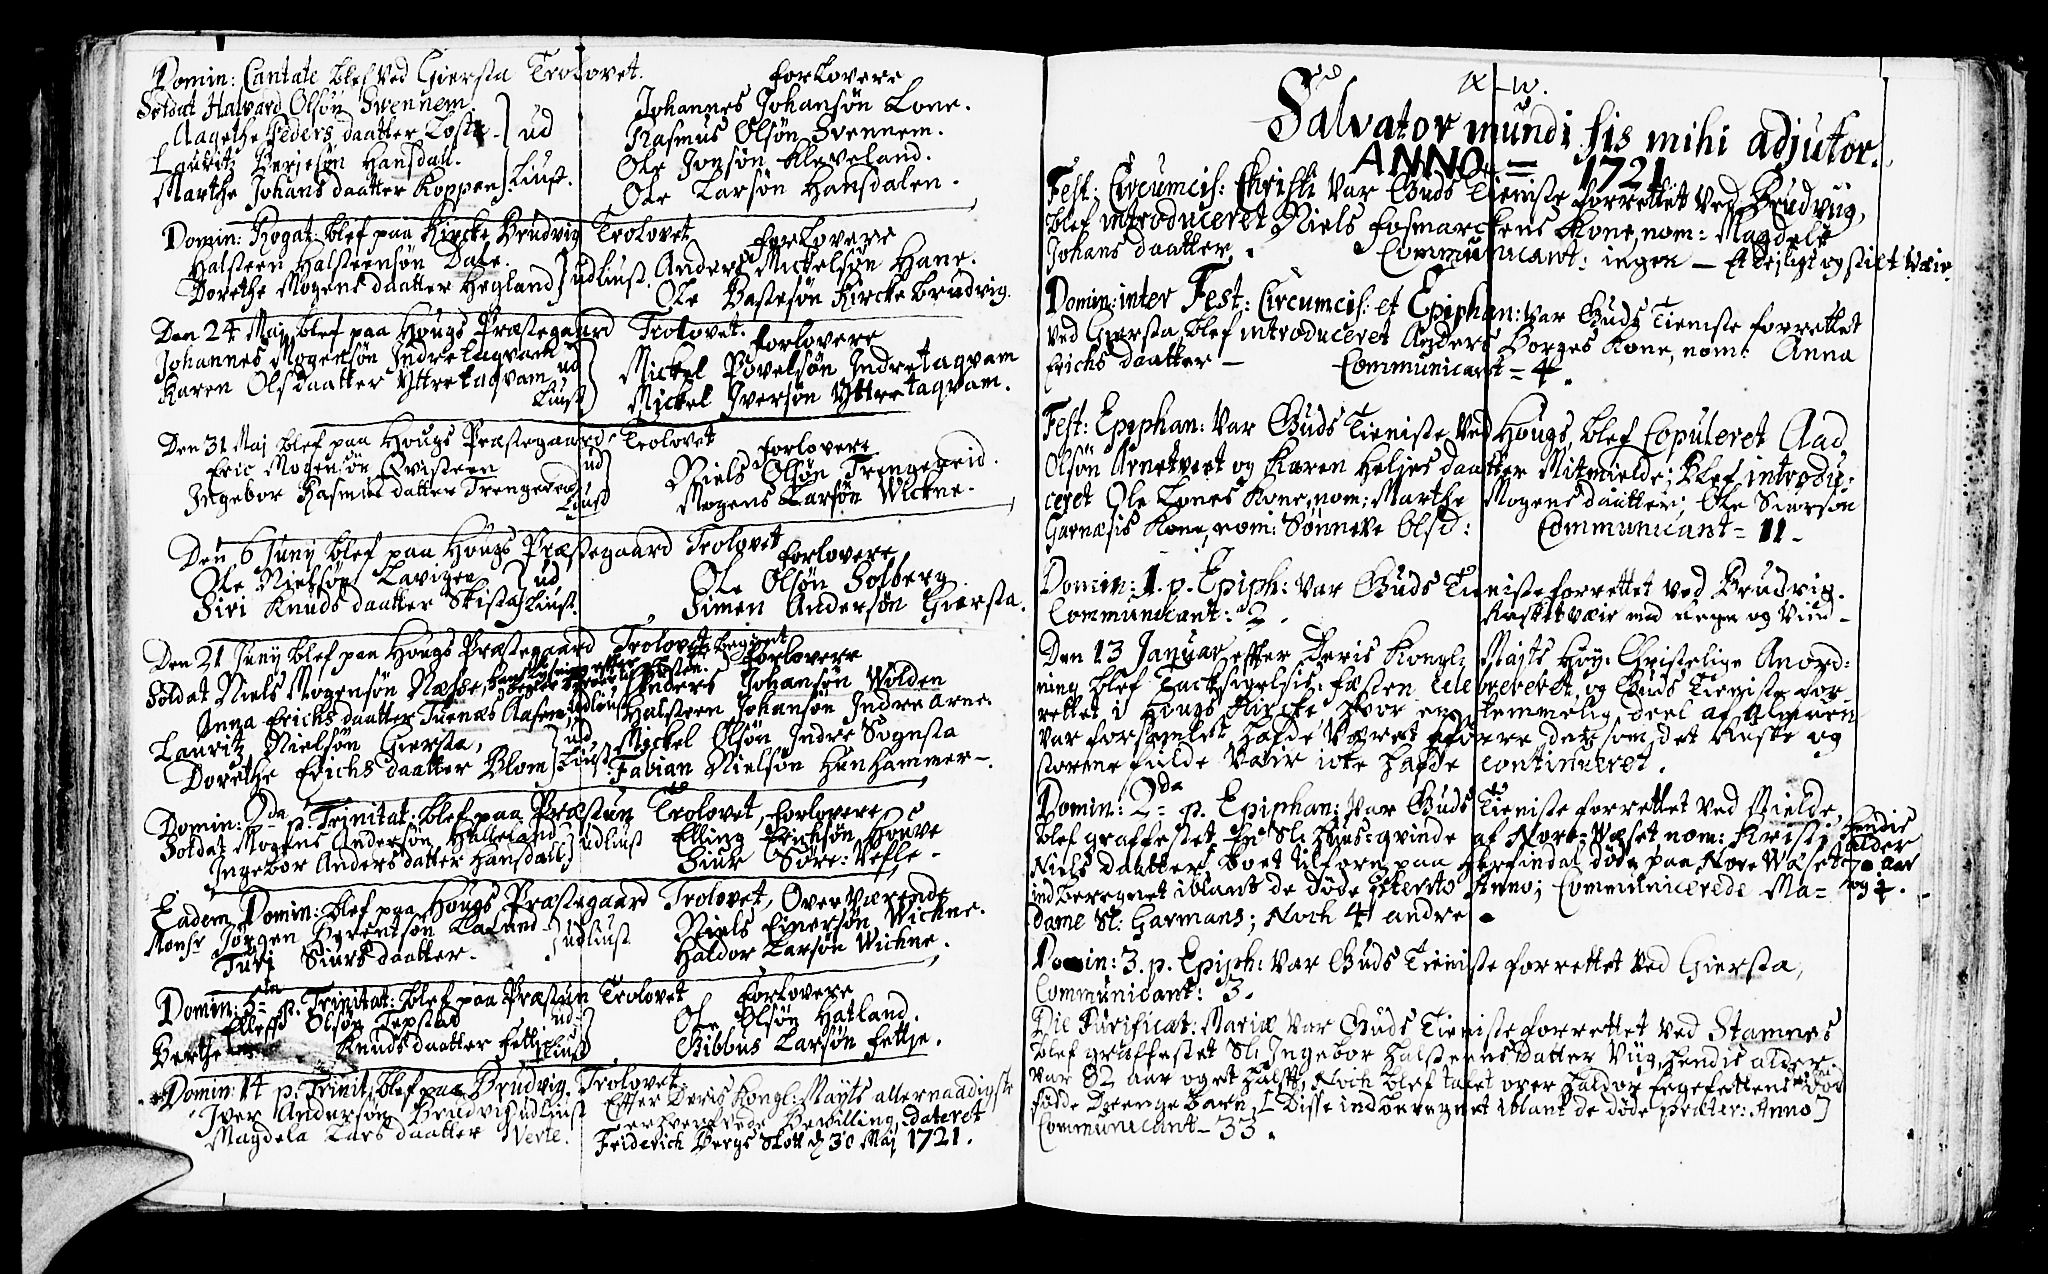 Domin: Cantate blef ved Giersta Trolovet.
forlovere
Soldat Halvard Olsøn Svennem.
Johannes Johansøn Lone.
Aagethe Peders daatter
ud
Rasmus Olsøn Svennem.
Lauritz Berjesøn Hansdall.
Ole Jonsøn Kleveland.
Marthe Johans daatter Koppen
Liust.
Ole Larsøn Hansdalen.
Domin: Rogat: blef paa Kircke Brudvig Trolovet
forlovere
Halsteen Halsteensøn Dale.
Anders Mickelsøn Hane.
Dorethe Mogens daatter Hegland
udliust.
Ole Bastesøn Kircke brudvig.
Den 24 Maj blef paa Hougs Præstegaard Trolovet.
forlovere
Johannes Mogensøn Indre tagvam
ud
Mickel Povelsøn Indre tagvam
Karen Olsdaatter Yttre tagvam
Liust
Mickel Iversøn Yttre tagvam.
Den 31 Maj blef paa Hougs Præstegaard Trolovet
forlovere
Eric Mogensøn Qvisteen
ud
Niels Olsøn Trengereid.
Ingebor Rasmus datter Trengereid
Liust
Mogens Larsøn Wickne.
Den 6 Juny blef paa Hougs Præstegaard Trolovet
forlovere
Ole Nielsøn Lavigen
ud
Ole Olsøn Solberg.
Siri Knuds daatter Skista
Liust.
Simen Andersøn Giersta.
Den 21 Juny blef paa Hougs Præstegaard Trolovet
forlovere
Soldat Niels Mogensøn Næsse,
Anders Johansøn Wolden
Anna Erichs daatter Tuenæs Aasem,
udliust
Halsteen Johansøn Indre Arne.
Lauritz Nielsøn Giersta,
ud
Mickel Olsøn Indre Sognsta
Dorethe Erichs daatter Blom
Liust.
Fabian Nielsøn Hunhammer
Domin: 2da p. Trinitat: blef paa Præstun Trolovet, forlovere
Soldat Mogens Andersøn Halleland
udliust
Elling Erichsøn Houve
Ingebor Anders datter Hansdall
Siur Søre: Vefle
Eadem Domin: blef paa Hougs Præstegaard Trolovet, Overværende
Monsr Jørgen Berentsøn
udliust
Niels Einersøn Wickne.
Turi Siurs daatter.
Haldor Larsøn Wickne.
Domin: 5ta p. Trinitat: blef paa Præstun Trolovet
forlovere
Ellef Olsøn Tepstad
ud
Ole Olsøn Hatland.
Berthe Knuds daatter Fettje
Liust
Gibbus Larsøn Fettje.
Domin: 14 p. Trinit: blef paa Brudvig Trolovet.
Iver Andersøn Brudvig
udliust
Effter Deris Kongl: Mayts allernaadigste
Magdela Lars daatter
Verte.
Bevilling, dateret
Friderich Bergs Slott d 30 Maj 1721.
Salvator mundi sis mihi adjutor.
ANNO = 1721
Fest: Circumcis: Christi var Guds Tieniste forrettet ved Brudvig,
blef introduceret Niels Fosmarckens Kone, nom: Magdele
Johans daatter.
Communicant: ingen – Et deiligt og stilt Væir.
Domin: inter Fest: Circumcis: et Epiphan: var Guds Tieniste forrettet
ved Giersta, blef introduceret Anders Borges Kone, nom: Anna
Erichs daatter –
Communicant = 4.
Fest: Epiphan: var Guds Tieniste ved Hougs, blef Copuleret Aad
Olsøn Arnetvert og Karen Heljes daatter Mitmielde; blef introdu:
ceret Ole Lones Kone, nom: Marthe Mogens daatter; Ole Siursøn
Garnæsis Kone, nom: Sønneve Olsd:
Communicant = 11 –
Domin: 1. p. Epiph: var Guds Tieniste forrettet ved Brudvig.
Communicant: 2.
Raskt væir med Regn og Vind –
Den 13 Januar effter Deris Kongl: Majts Høy. Christelige Anord:
ning blef Tacksigelsis. festen celebreret, og Guds Tieniste for
rettet i Hougs Kircke, hvor en temmelig deel af Almuen
var forsamlet, hafde været større dersom det Raske og
stormefulde Væir icke hafde continueret.
Domin: 2da p. Epiphan: var Guds Tieniste forrettet ved Mielde,
blef graffestet En Sl: Huus:qvinde af Nore:Wæset, nom: Kristi
Hendis
alder
70 aar
og 1.
Niels daatter, boet tilforn paa Herfindal, døde paa Nore Wæset
indberegnet iblant de døde præterito Anno; Communicerede Ma=
dame Sl: Garmans; Noch 41 andre.
Domin: 3. p. Epiph: var Guds Tieniste forrettet ved Giersta,
Communicant: 3.
Die Purificat: Mariæ var Guds Tieniste forrettet ved Stamnes
blef graffestet Sl: Ingebor Halsteens Datter Viig, hendis alder
var 82 aar og et halft, Noch blef talet over Haldor
fødde Drenge barn [Disse indberegnet iblant de døde præter: Anno]
Communicant – 33.